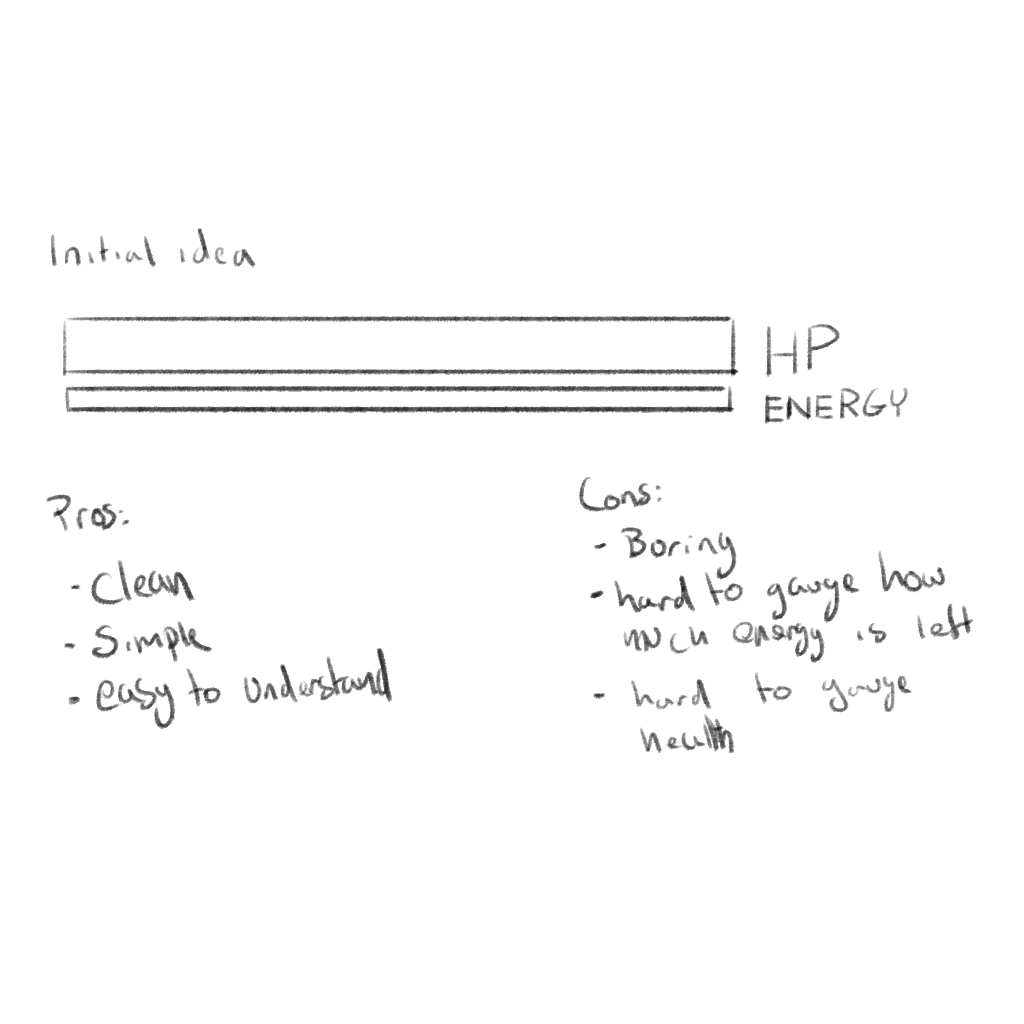 Initial idea
HP
ENERGY
Pros:
- Clean
- Simple
- easy to understand
Cons:
- Boring
- hard to gauge how
much energy is left
- hard to gauge
health